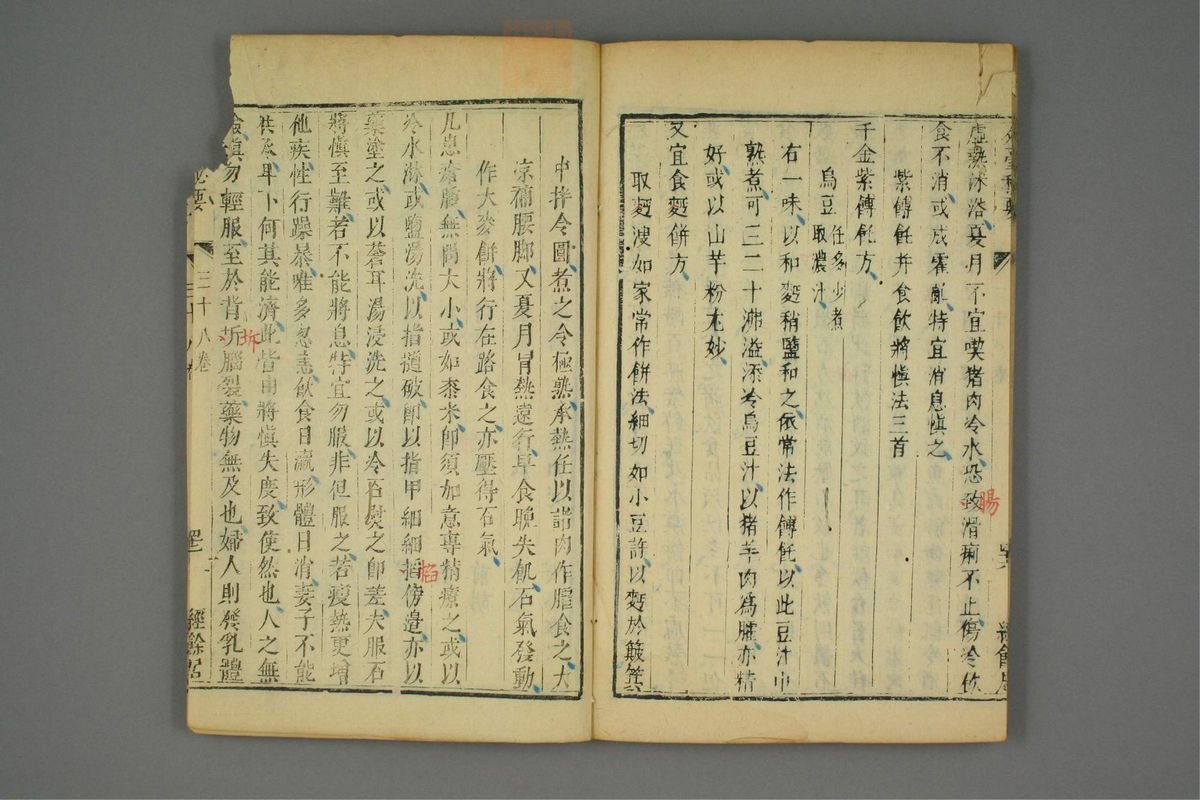 外臺秘要
虛熱沐浴夏月不宜喫猪肉冷水恐致滑痢不止傷冷飲
食不消或成霍亂特宜消息愼之
紫餺飥并食飲將愼法三首
千金紫餺飥方
烏豆任多少煮取濃汁
右一味以和麪稍鹽和之依常法作餺飥以此豆汁中
熟煮可三二十沸溢添冷烏豆汁以猪羊肉爲臛亦精
好或以山芋粉尤妙
又宜食麪餅方
取麪溲如家常作餅法細切如小豆許以麪於簸箕
中拌令圓煮之令極熟承熱任以諸肉作臛食之大
凉補腰脚又夏月冒熱遠行早食晚失飢石氣發動
作大麥餅將行在路食之亦壓得石氣
凡患瘡腫無問大小或如黍米即須加意專精療之或以
冷水淋或鹽湯洗以指搥破即以指甲細細搯傍邉亦以
藥塗之或以蒼耳湯浸洗之或以冷石熨之即差夫服石
將愼至難若不能將息特宜勿服非但服之若瘦熱更增
他疾性行躁暴唯多忿恚飲食日羸形體日消妻子不能
供承卑下何其能濟此皆由將愼失度致使然也人之無
愼勿輕服至於背㭊腦裂藥物無及也婦人則發乳體
三十八卷
經餘居
腸
搯
坼